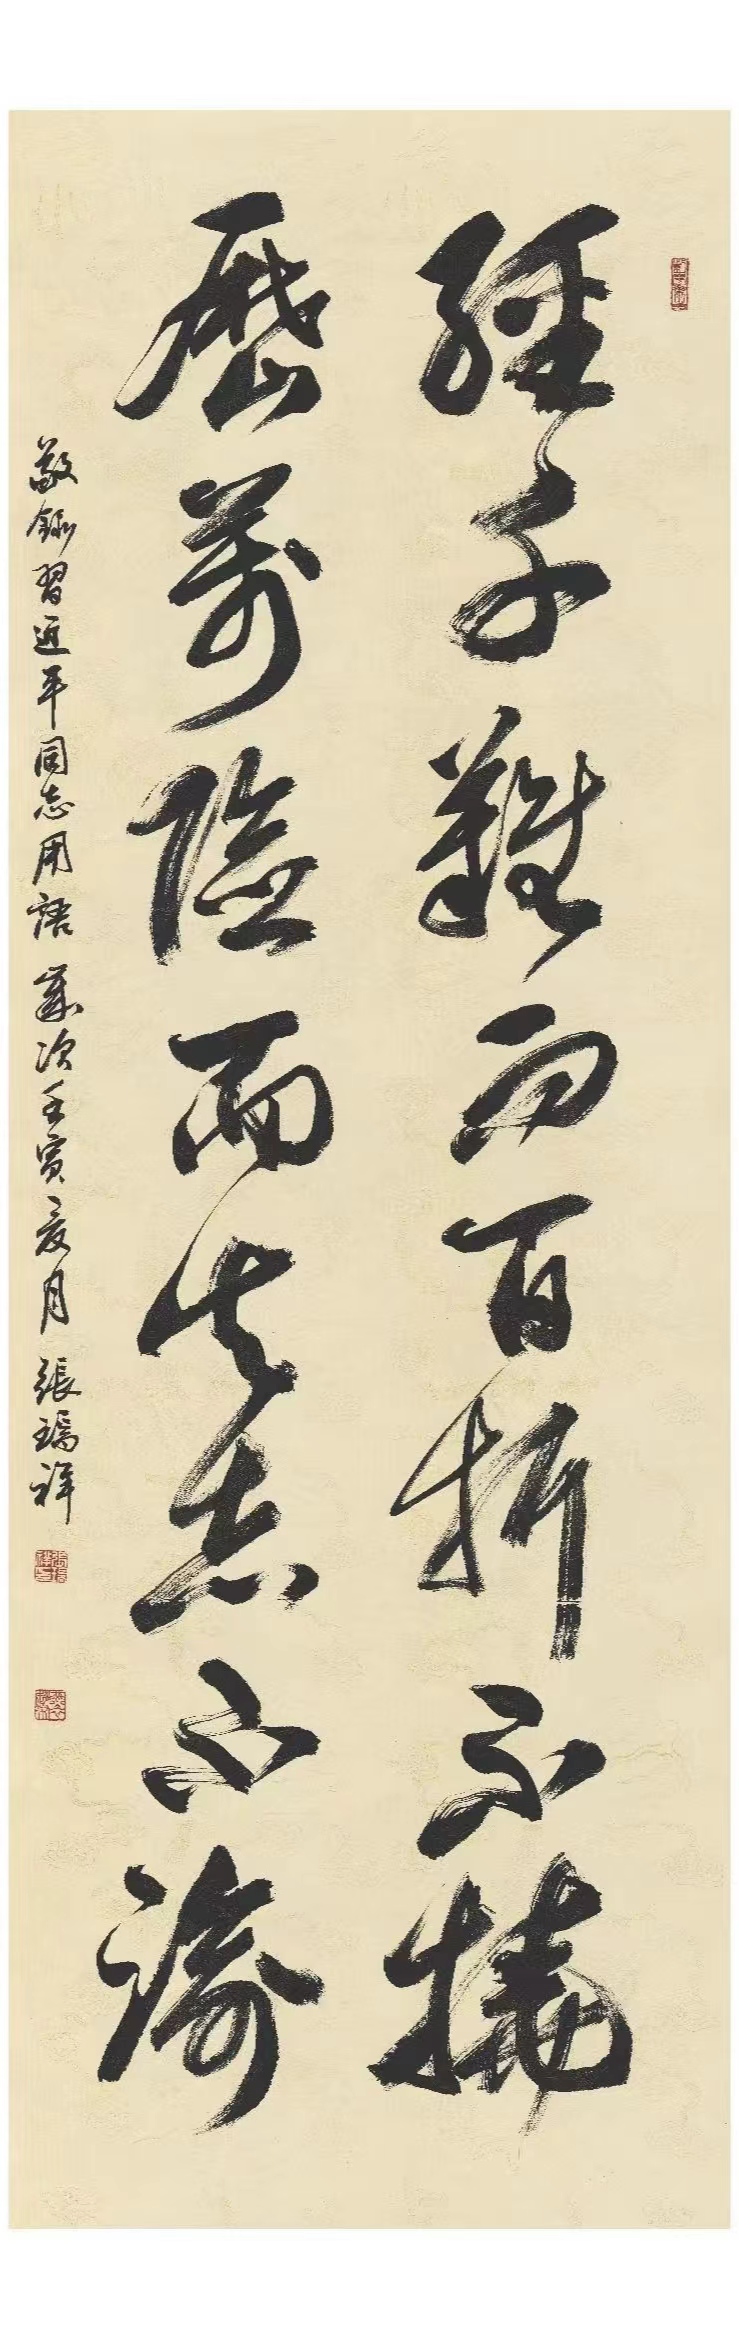 經千難而百折不撓
歷萬險而矢志不渝
敬錄習近平同志用語 歲次壬寅夏月 張瑞祥